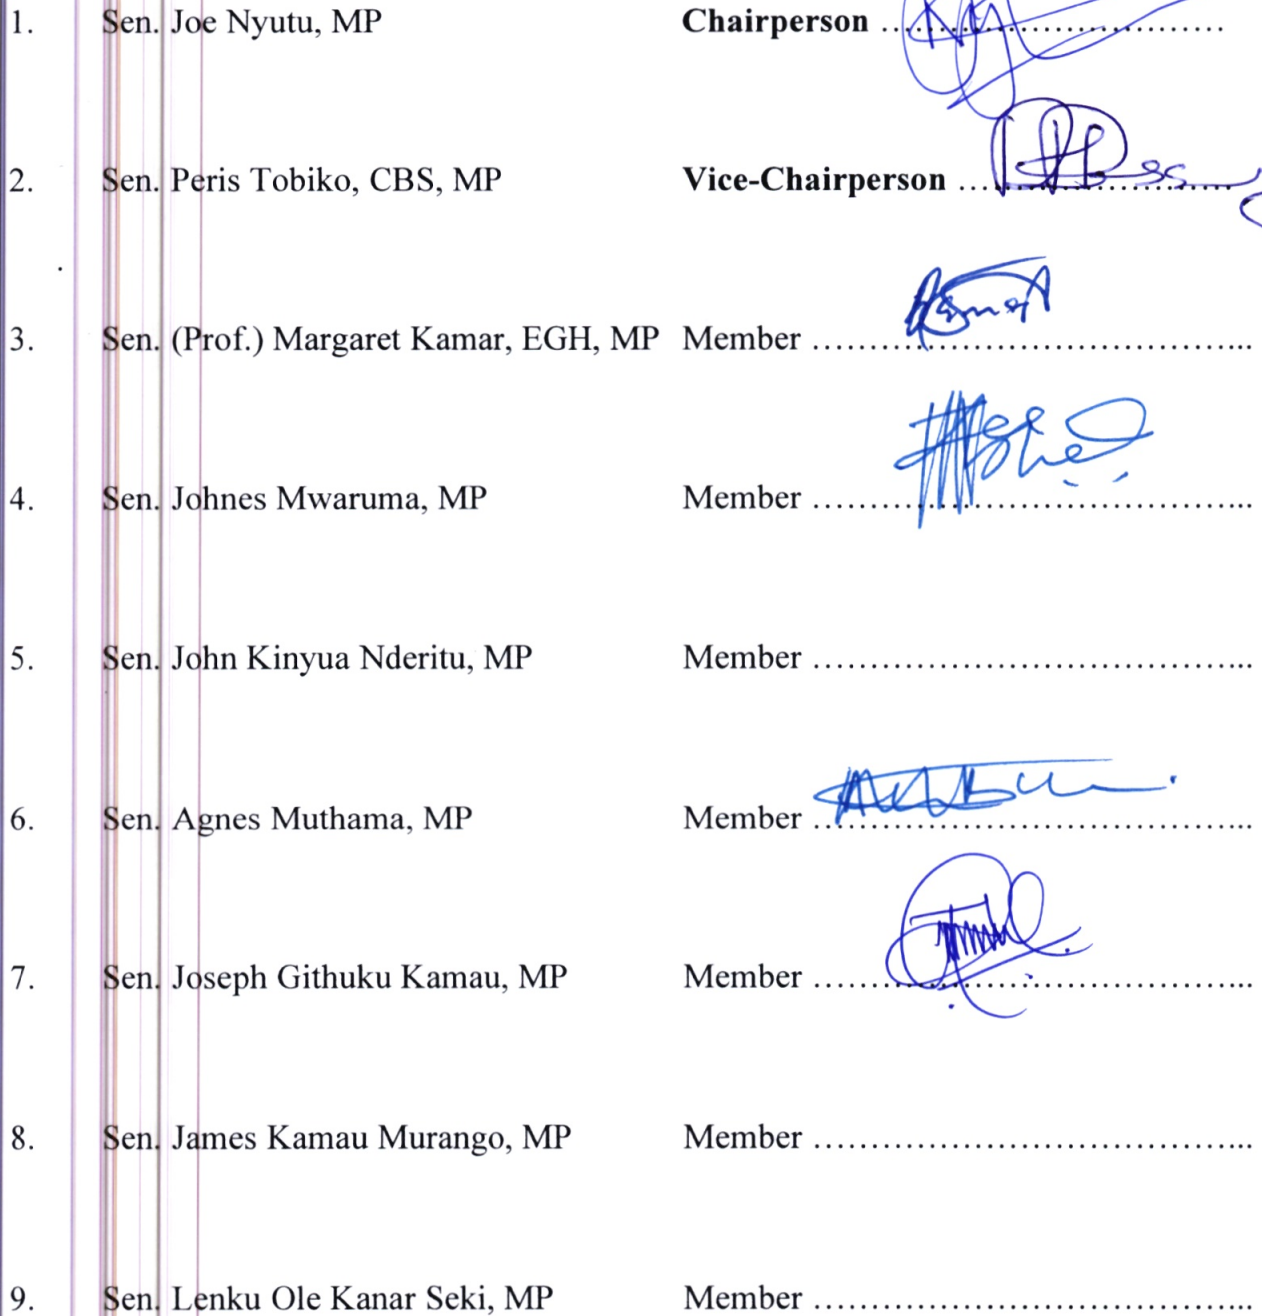 1. Sen. Joe Nyutu, MP Chairperson ..............................
2. Sen. Peris Tobiko, CBS, MP Vice-Chairperson ..............................
3. Sen. (Prof.) Margaret Kamar, EGH, MP Member ..............................
4. Sen. Johnes Mwaruma, MP Member ..............................
5. Sen. John Kinyua Nderitu, MP Member ..............................
6. Sen. Agnes Muthama, MP Member ..............................
7. Sen. Joseph Githuku Kamau, MP Member ..............................
8. Sen. James Kamau Murango, MP Member ..............................
9. Sen. Lenku Ole Kanar Seki, MP Member ..............................